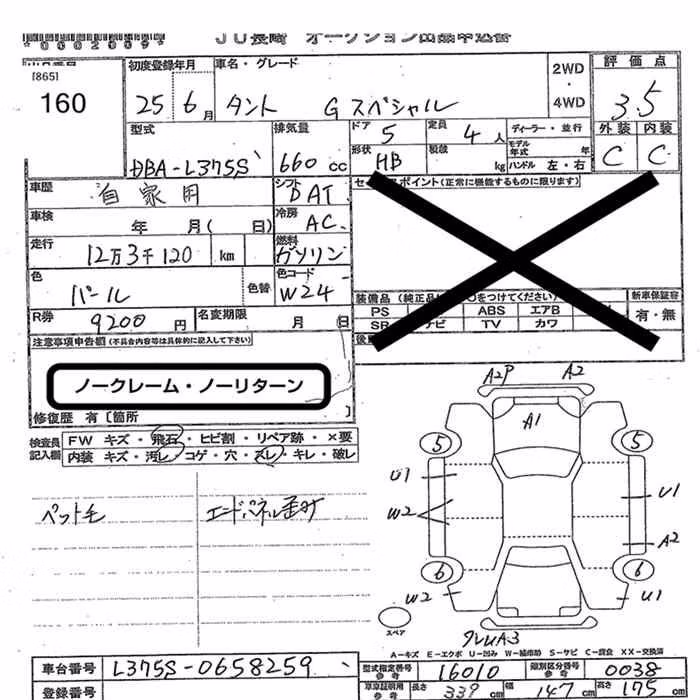 *0002009*
JU長崎 オークション出品申込書
[865]
160
初度登録年月 車名・グレード
25 6月 タント Gスペシャル
2WD
・
4WD
評価点
3.5
外装 内装
C C
型式 排気量 ドア 定員
DBA-L375S 660cc 5 4人
形状 積載 kg
HB
ディーラー・並行
モデル年式 年
ハンドル 左・右
車歴 自家用
シフト DAT
車検 年 月( 日)
冷房 AC
走行 12万3千120 km
燃料 ガソリン
色 パール 色替
色コード W24
R券 9200円 名変期限 月 日
ポイント(正常に機能するものに限ります)
装備品(純正品 をつけてください)
PS ABS エアB
SR ナビ TV カワ
新車保証書
有・無
注意事項申告欄(不具合内容等は具体的に記入して下さい)
ノークレーム・ノーリターン
修復歴 有〔箇所
検査員記入欄
FW キズ・飛石・ヒビ割・リペア跡・×要
内装 キズ・汚レ・コゲ・穴・スレ・キレ・破レ
ペット毛 エンドパネル歪み
A2P A2
A1
5 5
U1 U1
W2 A2
6 6
W2 U1
スペア
A-キズ E-エクボ U-凹み W-補修跡 S-サビ C-腐食 XX-交換済
車台番号 L375S-0658259
型式指定番号参考 16010 類別区分番号参考 0038
登録番号
車庫証明用参考 長さ 339cm 幅 147cm 高さ 175cm